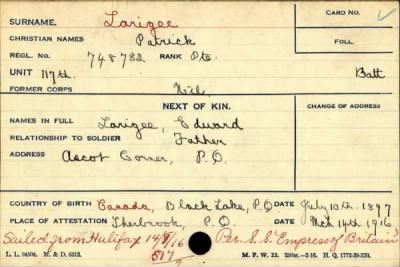 SURNAME. Larigee
CARD NO.
CHRISTIAN NAMES Patrick
FOLL.
REGL. NO. 748782 RANK Pte.
UNIT 117th. Batt
FORMER CORPS Nil.
NEXT OF KIN.
CHANGE OF ADDRESS
NAMES IN FULL Larigee, Edward
RELATIONSHIP TO SOLDIER Father
ADDRESS Ascot Corner, P.Q.
COUNTRY OF BIRTH Canada, Black Lake, P.Q. DATE July 10th. 1897
PLACE OF ATTESTATION Sherbrook, P.Q. DATE Mch 14th. 1916
Sailed from Halifax 14/8/16 Per. S.S. "Empress of Britain"
517
L. L. M. & D. M. F. W. 22. H. Q. 1772-39-233.